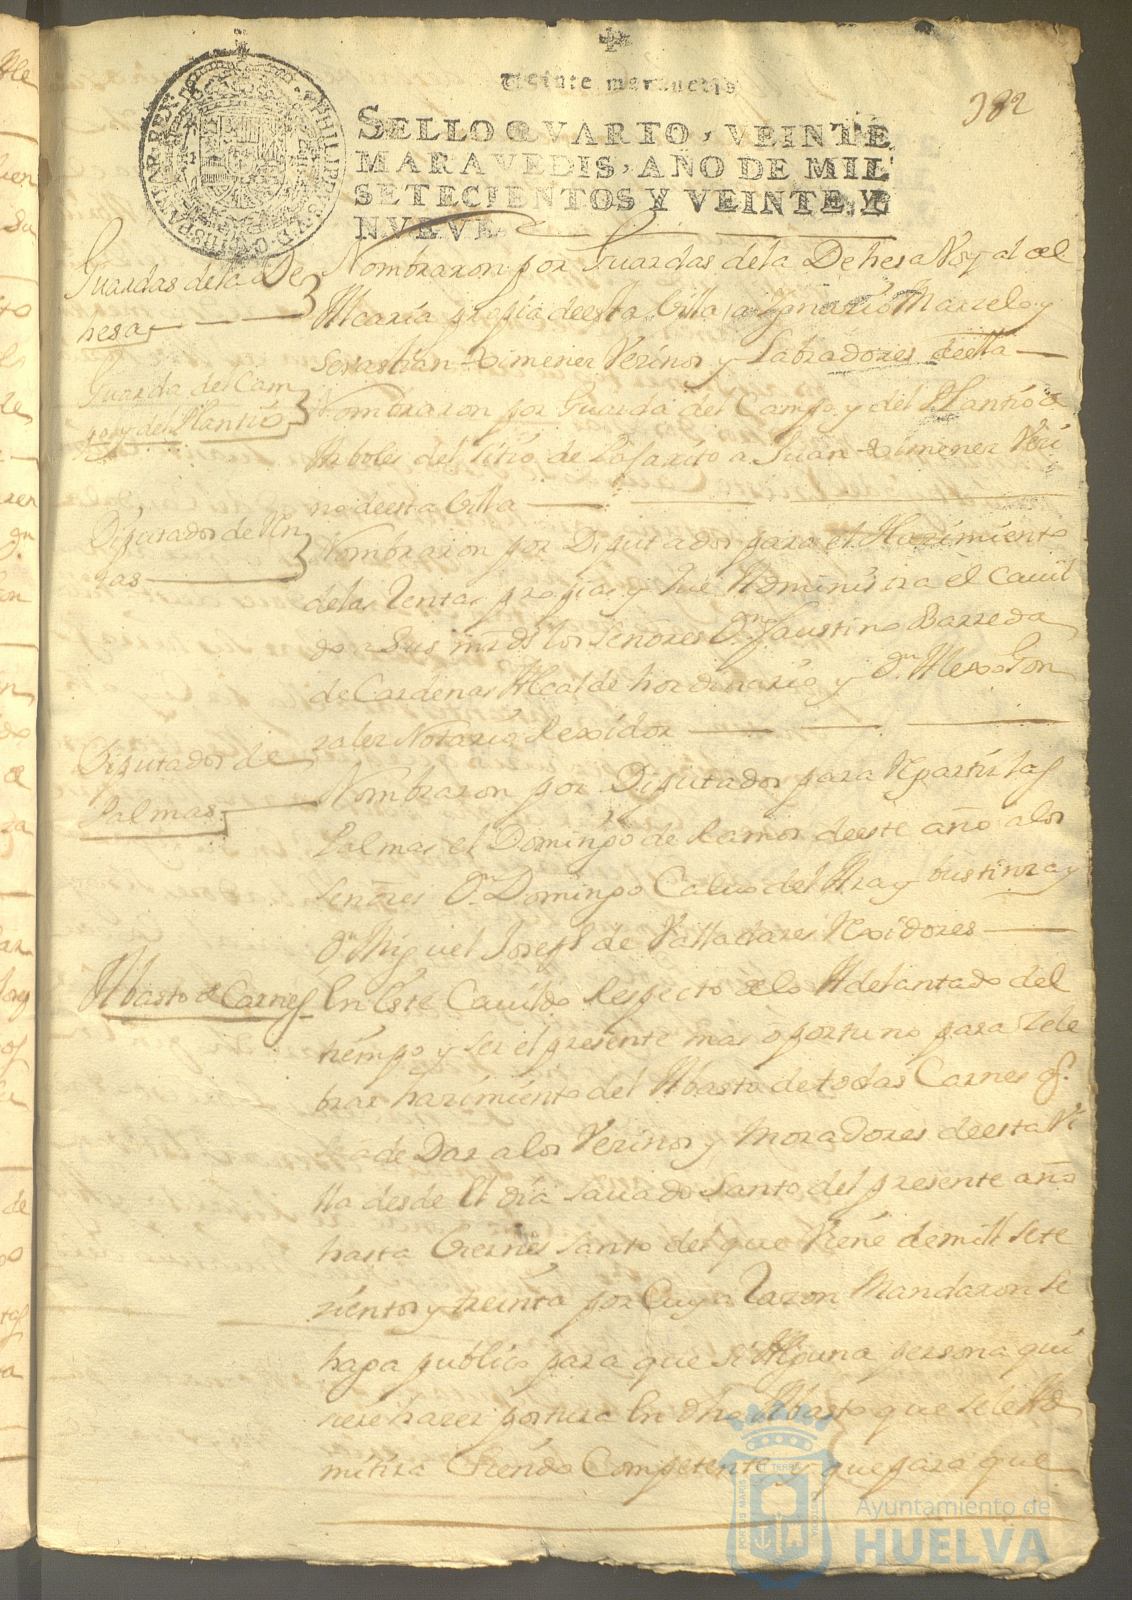 Veinte maravedis
382
SELLO QVARTO, VEINTE
MARAVEDIS, AÑO DE MIL
SETECIENTOS Y VEINTE, Y
NVEVE
PHILIPPVS V D G HISPANIAR REX
Guardas de la De
hesa
Nombraron por Guardas dela Dehesa Noy al del
Alcaria propia deesta Villa, a Ygnacio Marcelo y
Sevastian Ximenez Vezinos y Labradores deella
Guarda del Cam
po y del Plantio
Nombraron por Guarda del Campo y del Plantio de
Arboles del sitio de a Juan Ximenez Vezi
no deesta Villa
Diputados de Ren
tas
Nombraron por Diputados para el Hazimiento
delas Rentas propias y que Administra el Cauil
do a Sus mrds los Señores Dn. Faustino Barreda
de Cardenas Alcalde hordinario y Dn. Alexo Gon
zales Notario Rexidor
Diputados de
Palmas
Nombraron por Diputados para Repartir las
Palmas el Domingo de Ramos deeste año a los
Señores Dn. Domingo Calvo del Aza y bustinza y
Dn. Miguel Joseph de Valladares Rexidores
Abasto de Carnes
En Este Cauildo Respecto delo Adelantado del
tiempo y ser el presente mas oportuno para Zele
brar hazimiento del Abasto de todas Carnes q.
ha de Dar a los Vezinos y Moradores deesta Vi
lla desde El dia Sauado Santo del presente año
hasta Viernes Santo del que Viene de mill Sete
zientos y treinta por Cuya Razon Mandaron se
haga publico para que si Alguna persona qui
siere hazer postura En dho Abasto que se le Ad
mitira Siendo Competente, y que para que
PORTUS MARIS ET TERRAE CUSTODIA
Ayuntamiento de
HUELVA